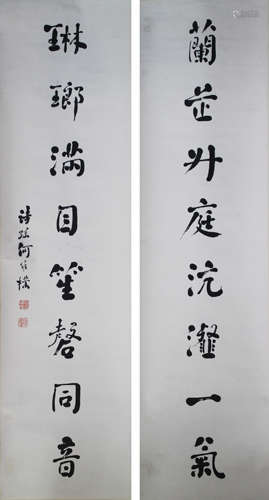 蘭茁升庭沆瀣一氣
琳瑯滿目笙磬同音
詩孫何維樸